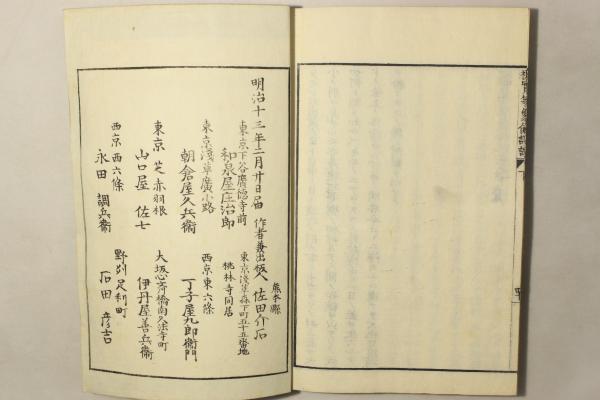 明治十三年二月廿日届
作者兼出版人
熊本縣
佐田介石
東京淺草森下町五十五番地
桃林寺同居
東京下谷廣徳寺前
和泉屋庄治郎
東京淺草廣小路
朝倉屋久兵衞
西京東六條
丁子屋九郎衞門
東京芝赤羽根
山口屋佐七
大坂心斎橋南久法寺町
伊丹屋善兵衞
西京西六條
永田調兵衞
野刕足利町
石田彦吉
下